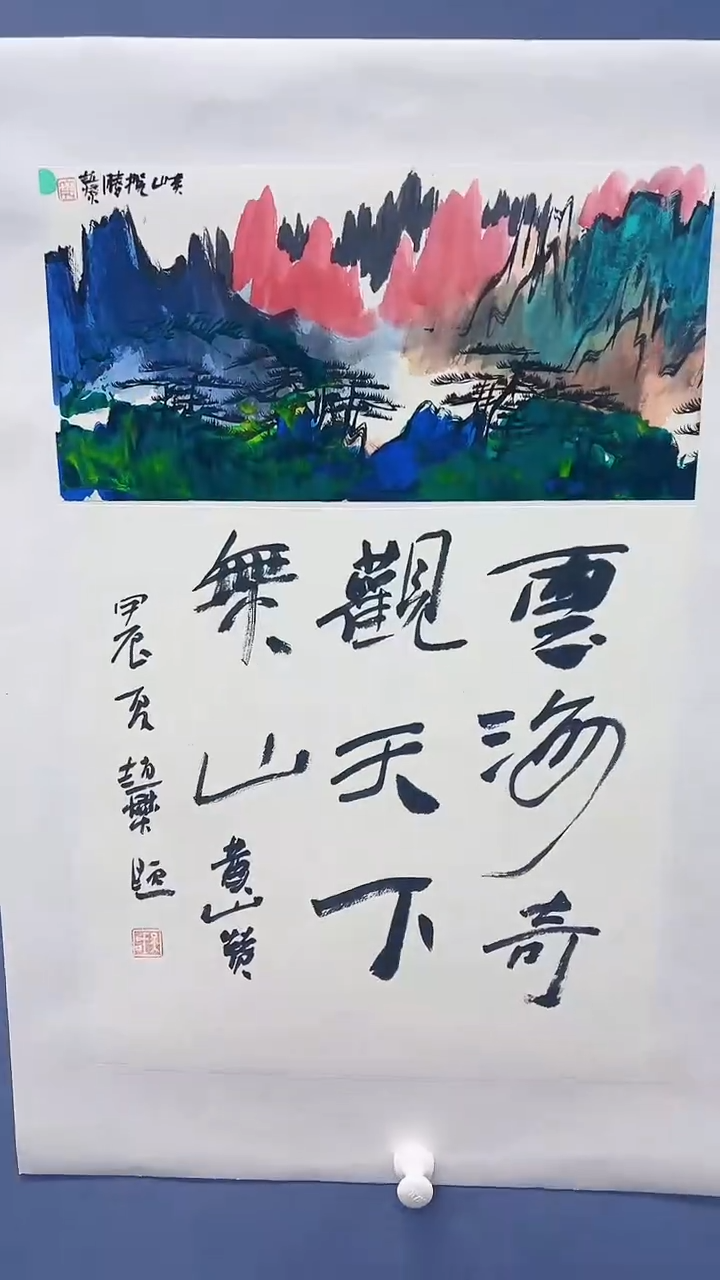 黄山攬勝
趙
雲海奇
觀天下
無山
黄山贊
甲辰夏趙題